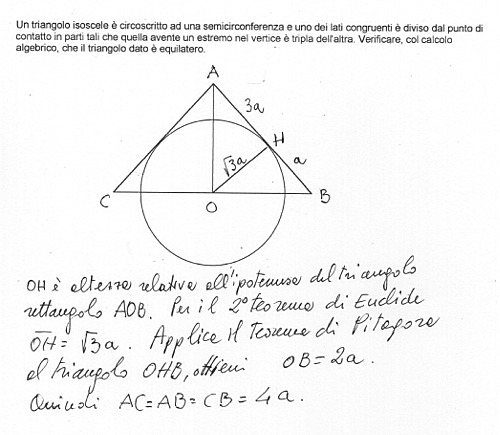 Un triangolo isoscele è circoscritto ad una semicirconferenza e uno dei lati congruenti è diviso dal punto di
contatto in parti tali che quella avente un estremo nel vertice è tripla dell'altra. Verificare, col calcolo
algebrico, che il triangolo dato è equilatero.
A
3a
H
√3a
a
C
O
B
OH è altezza relativa all'ipotenusa del triangolo
rettangolo AOB. Per il 2° teorema di Euclide
OH = √3a. Applica il Teorema di Pitagora
al triangolo OHB, ottieni OB = 2a.
Quindi AC = AB = CB = 4a.